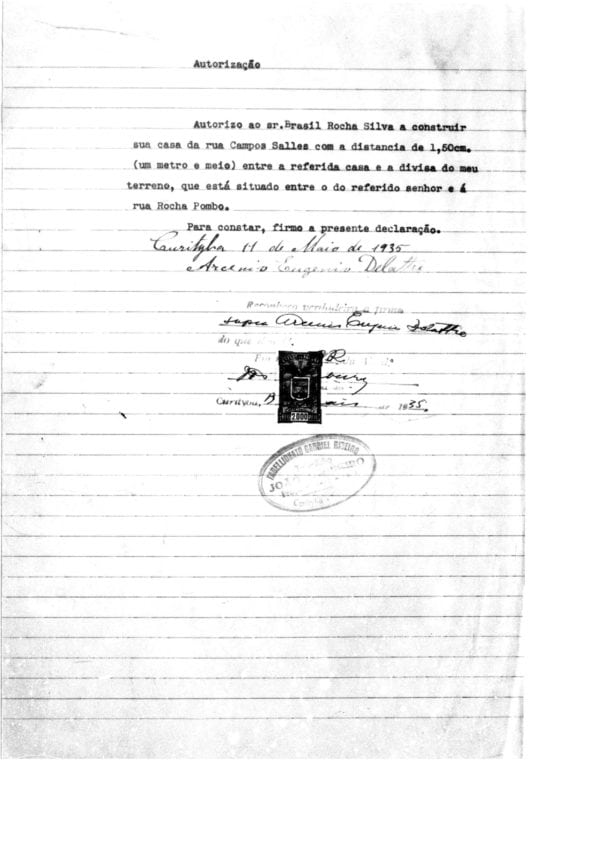 Autorização
Autorizo ao sr.Brasil Rocha Silva a construir
sua casa da rua Campos Salles com a distancia de 1,50cm.
(um metro e meio) entre a referida casa e a divisa do meu
terreno, que está situado entre o do referido senhor e á
rua Rocha Pombo.
Para constar, firmo a presente declaração.
Curityba 11 de Maio de 1935
Arcenio Eugenio Delattre
Reconheço verdadeira a firma
supra Arcenio Eugenio Delattre
do que
2.000
Curityba, de 1935.
TABELLIONATO GABRIEL RIBEIRO